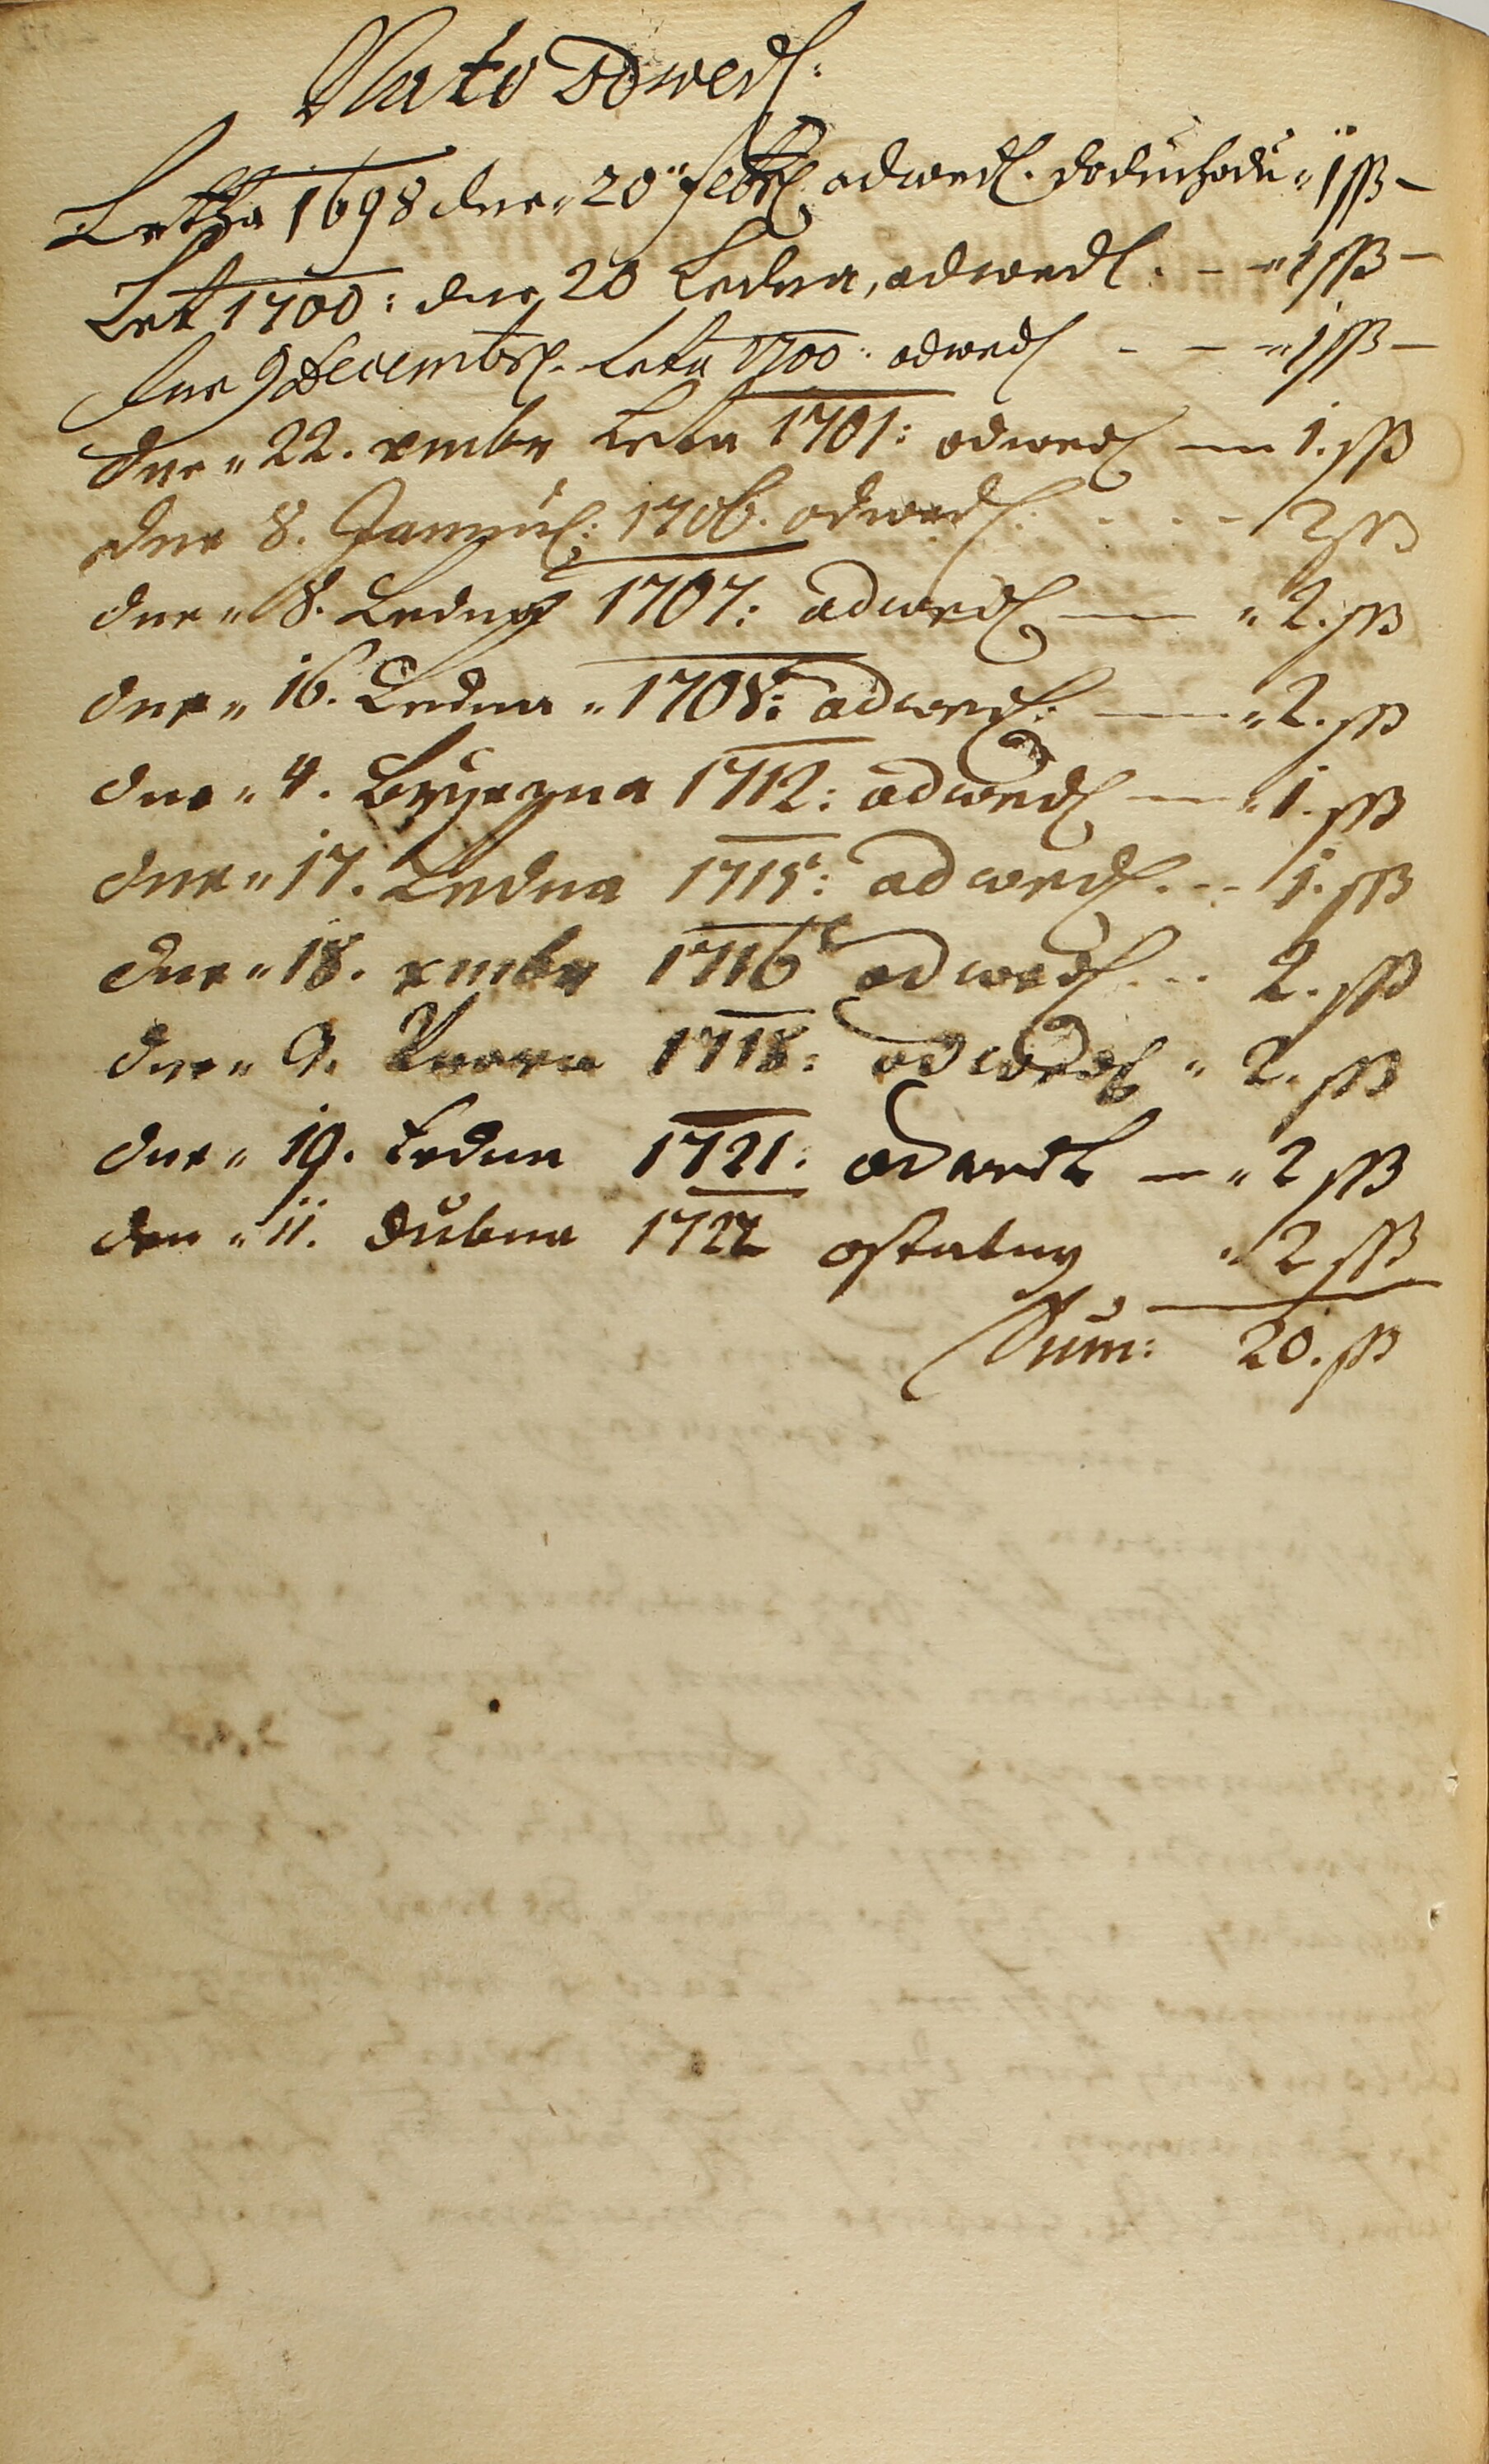 Nato odwedl:
Letha 1698 dne 20 Febr: odwedl. do duchodu " 1 ß –
Let 1700: dne 20 Ledna, odwedl. – – " 1 ß –
Dne 9 Decembr. Leta 1700: odwedl – – " 1 ß –
Dne " 22. xmbr Leta 1701: odwedl — 1. ß
dne 8. Januar: 1706. odwedl. - - - - 2 ß
dne " 8. Ledna 1707: odwedl — " 2. ß
dne " 16. Ledna " 1708: odwedl: — " 2. ß
dne " 4. Brzezna 1712: odwedl — " 1. ß
dne " 17. Ledna 1715: odwedl. - - 1. ß
dne " 18. xmbr 1716 odwedl - - 2. ß
dne " 9. Unora 1718: odwedl " 2. ß
dne " 19. Ledna 1721: odwedl — " 2 ß
den " 11. dubna 1722 ostatny " 2 ß
Sum: 20. ß